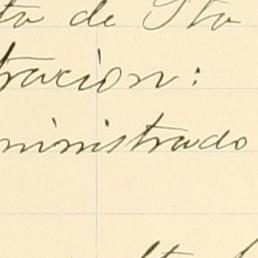 to de Sta
tracion:
ministrado